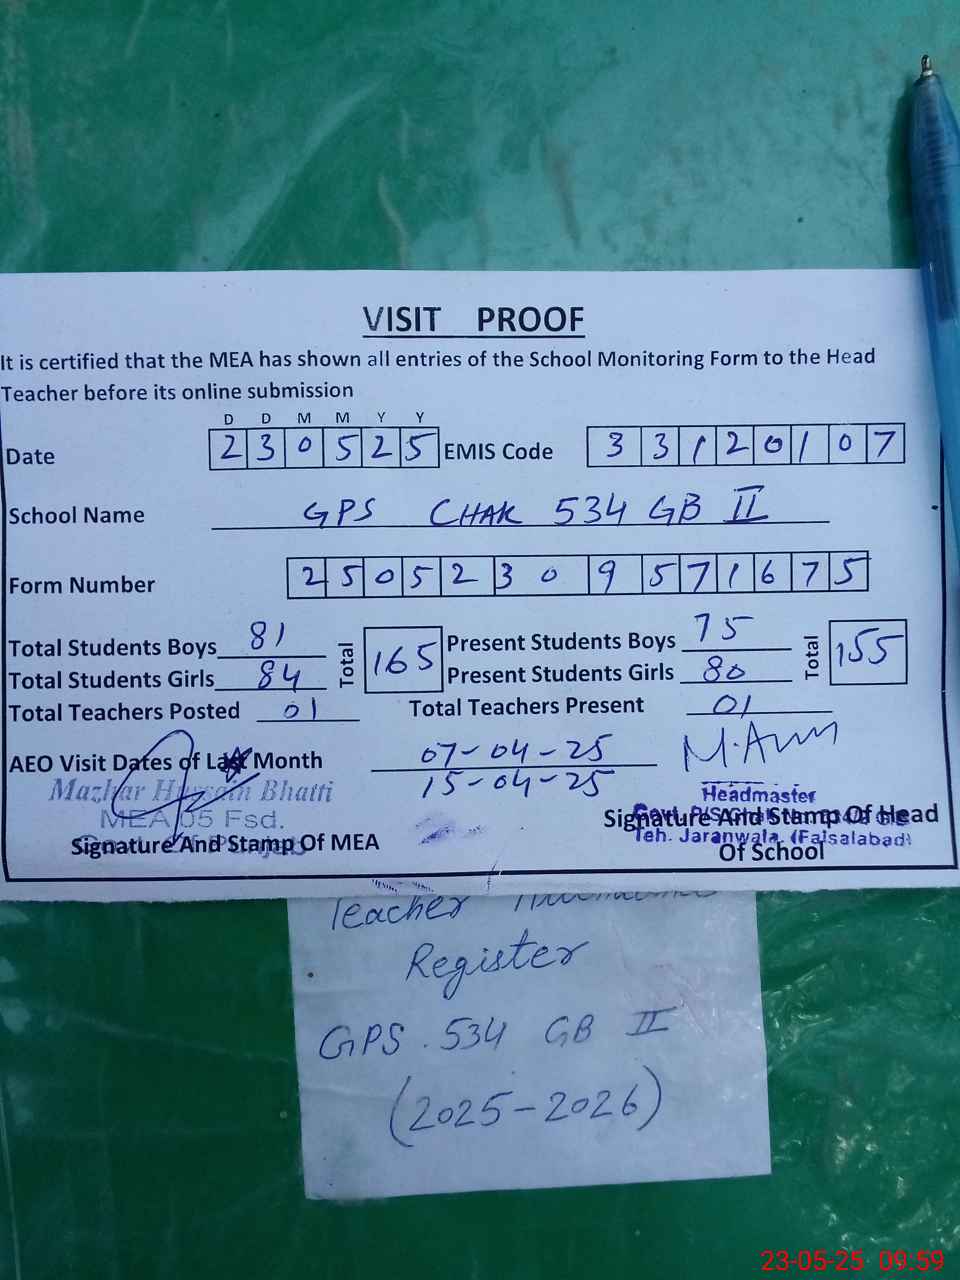 VISIT PROOF
It is certified that the MEA has shown all entries of the School Monitoring Form to the Head
Teacher before its online submission
D D M M Y Y
Date 2 3 0 5 2 5 EMIS Code 3 3 1 2 0 1 0 7
School Name GPS CHAK 534 GB II
Form Number 2 5 0 5 2 3 0 9 5 7 1 6 7 5
Total Students Boys 81 Total 165 Present Students Boys 75 Total 155
Total Students Girls 84 Present Students Girls 80
Total Teachers Posted 01 Total Teachers Present 01
AEO Visit Dates of Last Month 07-04-25
15-04-25
Mazhar Hussain Bhatti
MEA 05 Fsd.
Signature And Stamp Of MEA
Headmaster
Signature And Stamp Of Head
Teh. Jaranwala (Faisalabad)
Of School
Teacher
Register
GPS. 534 GB II
(2025-2026)
23-05-25 09:59